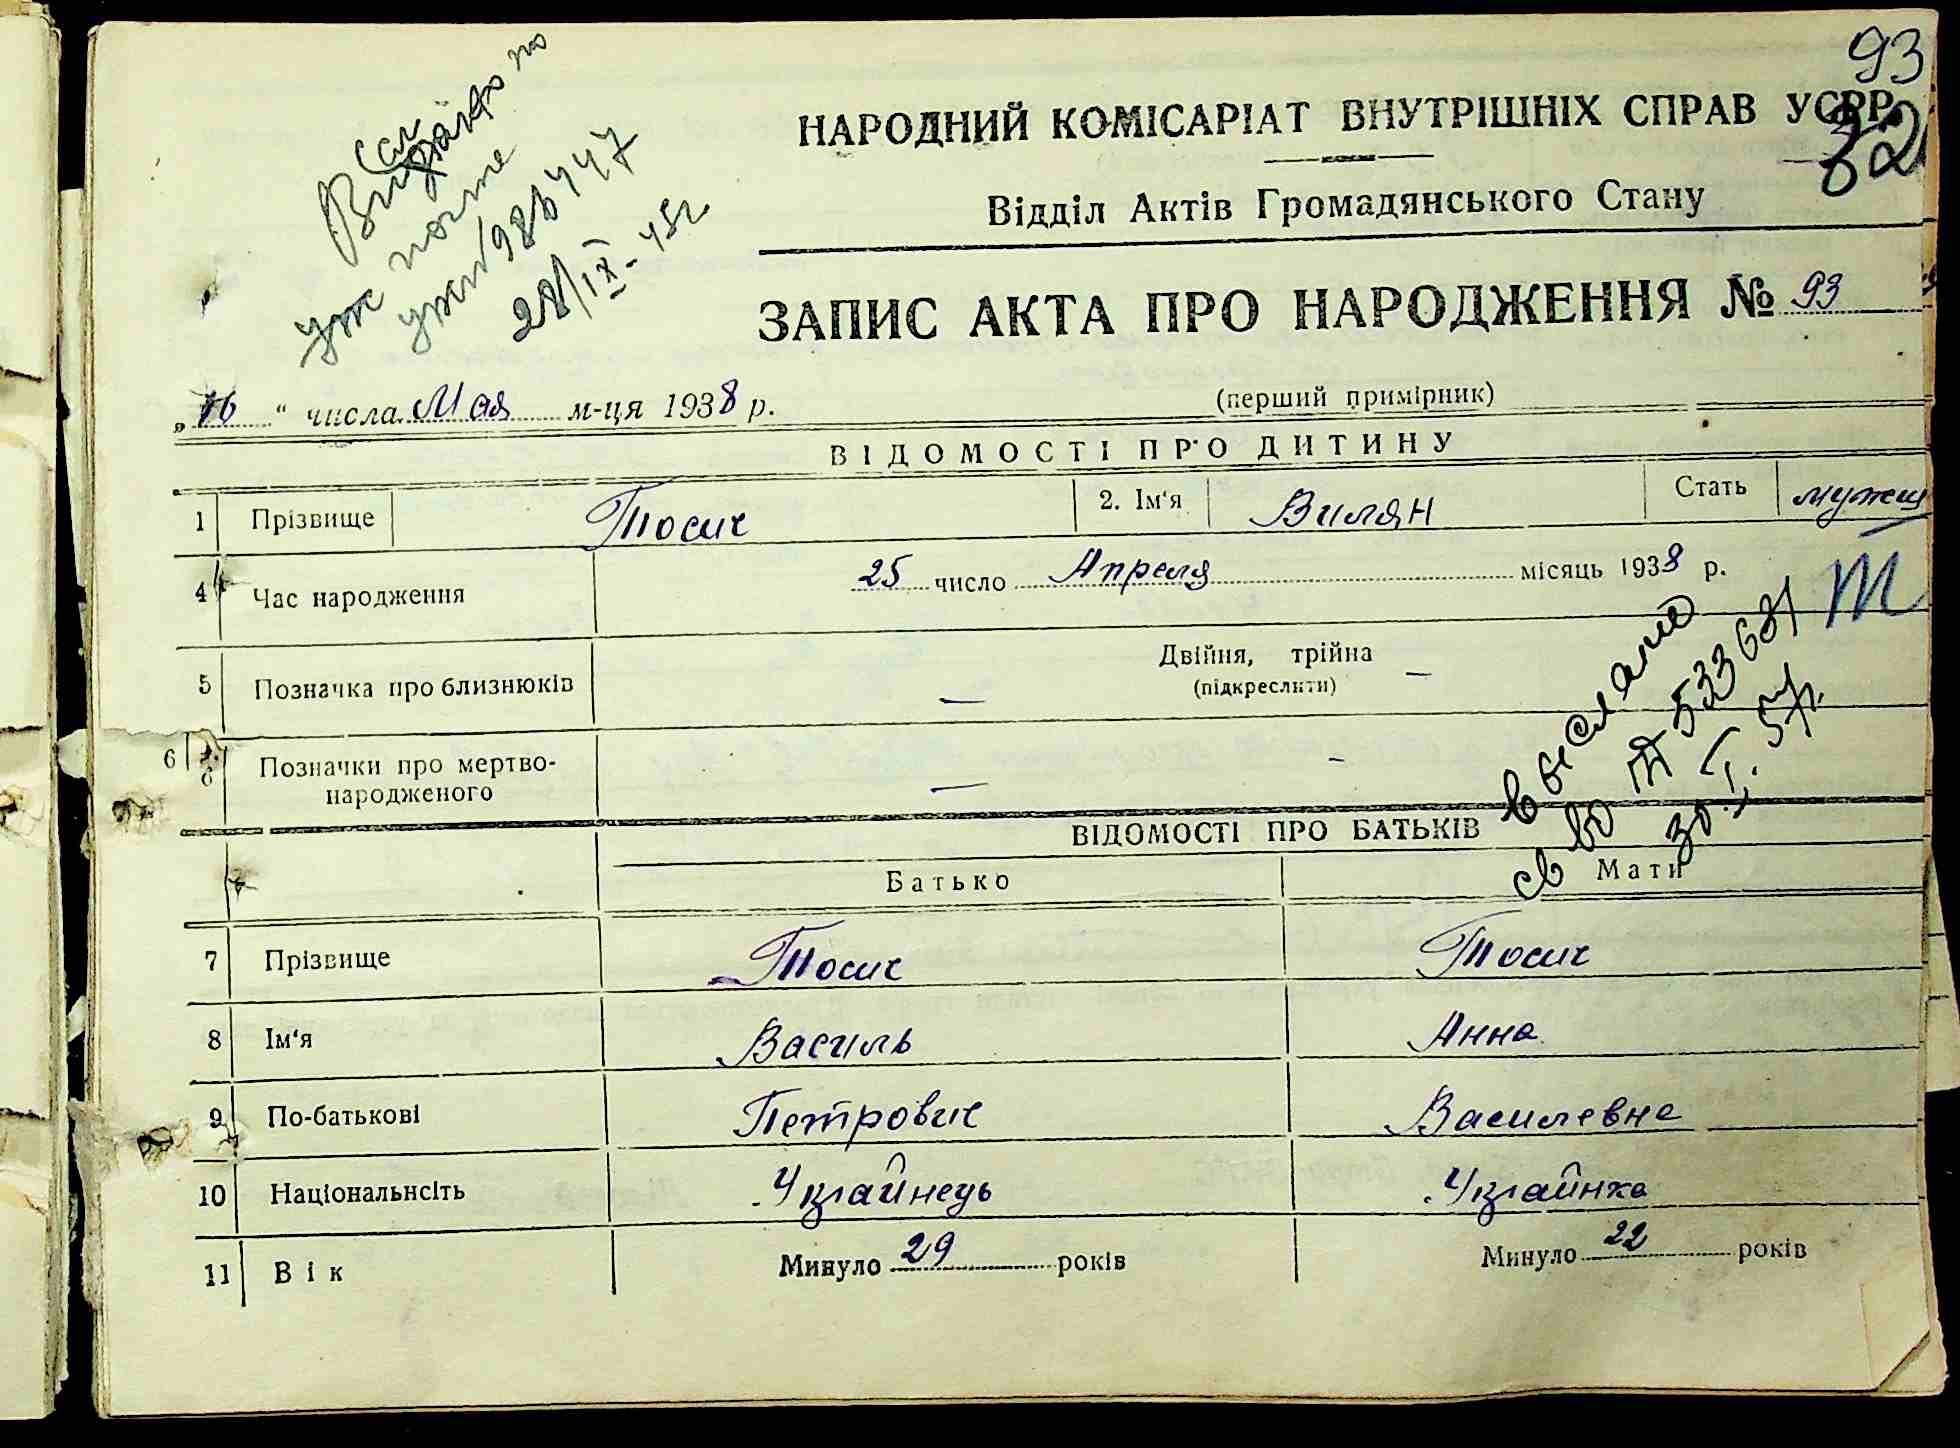 93
82
НАРОДНИЙ КОМІСАРІАТ ВНУТРІШНІХ СПРАВ УСРР
Відділ Актів Громадянського Стану
ЗАПИС АКТА ПРО НАРОДЖЕННЯ № 93
уже
28/IX-45г
„16“ числа Мая м-ця 1938 р.
(перший примірник)
ВІДОМОСТІ ПРО ДИТИНУ
1 Прізвище Тосич 2. Ім'я Вилян Стать мужск
4 Час народження 25 число Апреля місяць 1938 р.
5 Позначка про близнюків — Двійня, трійна —
(підкреслити)
6 Позначки про мертво-
народженого — -
выслано
св во 533681
30.I.5
ВІДОМОСТІ ПРО БАТЬКІВ
Батько Мати
7 Прізвище Тосич Тосич
8 Ім'я Василь Анна
9 По-батькові Петрович Василевна
10 Національнсіть Украйнець Украйнка
11 Вік Минуло 29 років Минуло 22 років